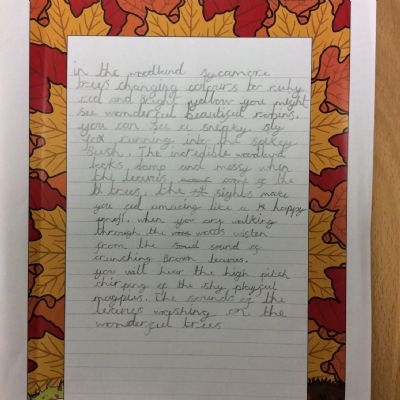 in the woodland sycamore
trees changing colours to ruby
red and bright yellow you might
see wonderful beautiful robins.
you can see a sneaky sly
fox running into the
bush. The incredible woodland
looks damp and messy when
the leaves come of the
trees. the sights make
you feel amazing like a happy
emoji. when you are walking
through the woods listen
from the sound of
crunching Brown leaves.
you will hear the high pitch
chirping of the shy playful
magpies. The sounds of the
leaves on the
wonderful trees